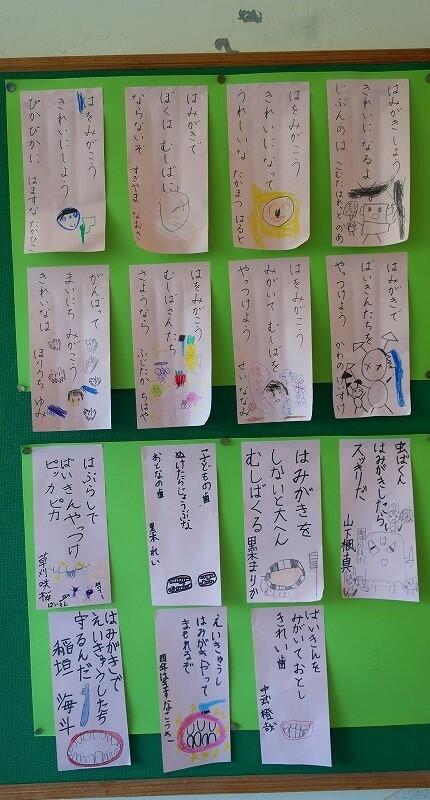 はみがきしよう
きれいになるよ
じぶんのは
はをみがこう
きれいになって
うれしいな
たかまつ はると
はみがきで
ぼくは むしばに
ならないぞ
すぎやま なおき
はをみがこう
きれいにしよう
ぴかぴかに
はまずな たかひこ
はみがきで
ばいきんたちを
やっつけよう
かわの けいすけ
はをみがこう
みがいて むしばを
やっつけよう
はをみがこう
むしばきんたち
さようなら
ふじたか ちはや
がんばって
まいにち みがこう
きれいなは
ほりうち ゆみ
虫ばくん
はみがきしたら
スッキリだ
山下楓真
はみがきを
しないと大へん
むしばくる
黒木まりか
子どもの歯
ぬけたらじょうぶな
おとなの歯
黒木 れい
はぶらしで
ばいきんやっつけ
ピッカピカ
草刈咲桜
ばいきんを
みがいておとし
きれい歯
中武橙哉
えいきゅうし
はみがきやって
まもれるぞ
はみがきで
えいきゅうしたち
守るんだ
稲垣 海斗